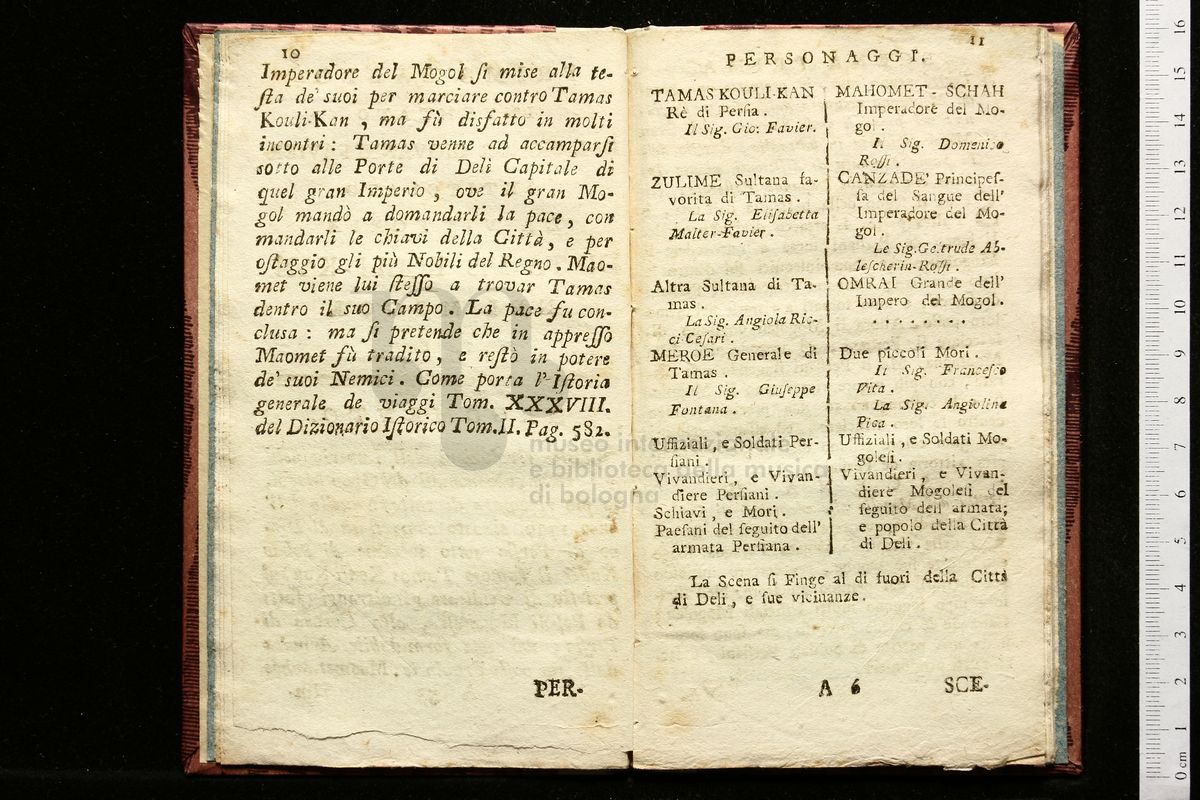 10
Imperadore del Mogol ſi mise alla te-
ſta de' suoi per marciare contro Tamas
Kouli-Kan , ma fù disfatto in molti
incontri : Tamas venne ad accamparſi
sotto alle Porte di Delì Capitale di
quel gran Imperio , ove il gran Mo-
gol mandò a domandarli la pace , con
mandarli le chiavi della Città , e per
oſtaggio gli più Nobili del Regno . Mao-
met viene lui ſteſſo a trovar Tamas
dentro il suo Campo . La pace fu con-
clusa : ma ſi pretende che in appreſſo
Maomet fù tradito , e reſtò in potere
de' suoi Nemici . Come porta l'Iſtoria
generale de viaggi Tom. XXXVIII.
del Dizionario Iſtorico Tom.II. Pag. 582.
PER-
11
PERSONAGGI.
TAMAS KOULI-KAN
Rè di Perſia .
Il Sig. Gio: Favier.
ZULIME Sultana fa-
vorita di Tamas .
La Sig. Eliſabetta
Malter-Favier .
Altra Sultana di Ta-
mas .
La Sig. Angiola Ric-
ci Ceſari .
MEROE Generale di
Tamas .
Il Sig. Giuſeppe
Fontana .
Uffiziali , e Soldati Per-
ſiani .
Vivandieri , e Vivan-
diere Perſiani .
Schiavi , e Mori .
Paeſani del ſeguito dell'
armata Perſiana .
MAHOMET - SCHAH
Imperadore del Mo-
gol .
Il Sig. Domenico
Roſſi .
CANZADE' Principeſ-
ſa del Sangue dell'
Imperadore del Mo-
gol .
Le Sig. Geltrude Ab-
leſcherin-Roſſi .
OMRAI Grande dell'
Impero del Mogol .
. . . . . . . .
Due piccoli Mori .
Il Sig. Franceſco
Vita .
La Sig. Angiolina
Pica .
Uffiziali , e Soldati Mo-
goleſi .
Vivandieri , e Vivan-
diere Mogoleſi del
ſeguito dell' armata;
e popolo della Città
di Deli .
La Scena ſi Finge al di fuori della Città
di Deli , e ſue vicinanze .
A 6
SCE-
museo internazionale
e biblioteca della musica
di bologna
0 cm 1 2 3 4 5 6 7 8 9 10 11 12 13 14 15 16